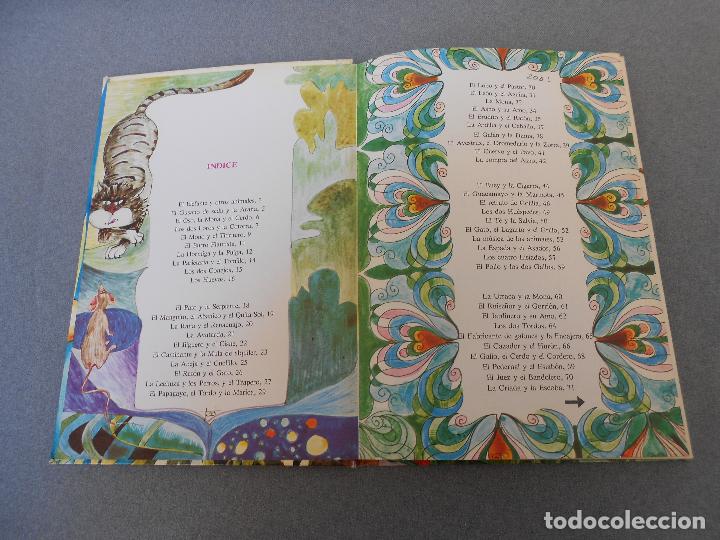 INDICE
El Elefante y otros animales, 5
El Gusano de seda y la Araña, 5
El Oso, la Mona y el Cerdo, 6
Los dos Loros y la Cotorra, 7
El Mono y el Titiritero, 9
El Burro Flautista, 11
La Hormiga y la Pulga, 12
La Parietaria y el Tomillo, 14
Los dos Conejos, 15
Los Huevos, 16
El Pato y la Serpiente, 18
El Manguito, el Abanico y el Quita Sol, 19
La Rana y el Renacuajo, 20
La Avutarda, 21
El Jilguero y el Cisne, 22
El Caminante y la Mula de alquiler, 23
La Abeja y el Cuclillo, 25
El Ratón y el Gato, 26
La Lechuza y los Perros y el Trapero, 27
El Papagayo, el Tordo y la Marica, 29
El Lobo y el Pastor, 30
El León y el Aguila, 31
La Mona, 32
El Asno y su Amo, 34
El Erudito y el Ratón, 35
La Ardilla y el Caballo, 37
El Galán y la Dama, 38
El Avestruz, el Dromedario y la Zorra, 39
El Cuervo y el Pavo, 41
La compra del Asno, 42
El Buey y la Cigarra, 44
El Guacamayo y la Marmota, 45
El retrato de Golilla, 46
Los dos Huéspedes, 49
El Té y la Salvia, 50
El Gato, el Lagarto y el Grillo, 52
La música de los animales, 53
La Espada y el Asador, 55
Los cuatro Lisiados, 57
El Pollo y los dos Gallos, 59
La Urraca y la Mona, 60
El Ruiseñor y el Gorrión, 61
El Jardinero y su Amo, 62
Los dos Tordos, 64
El Fabricante de galones y la Encajera, 65
El Cazador y el Hurón, 66
El Gallo, el Cerdo y el Cordero, 68
El Pedernal y el Eslabón, 69
El Juez y el Bandolero, 70
La Criada y la Escoba, 71
todocoleccion.net